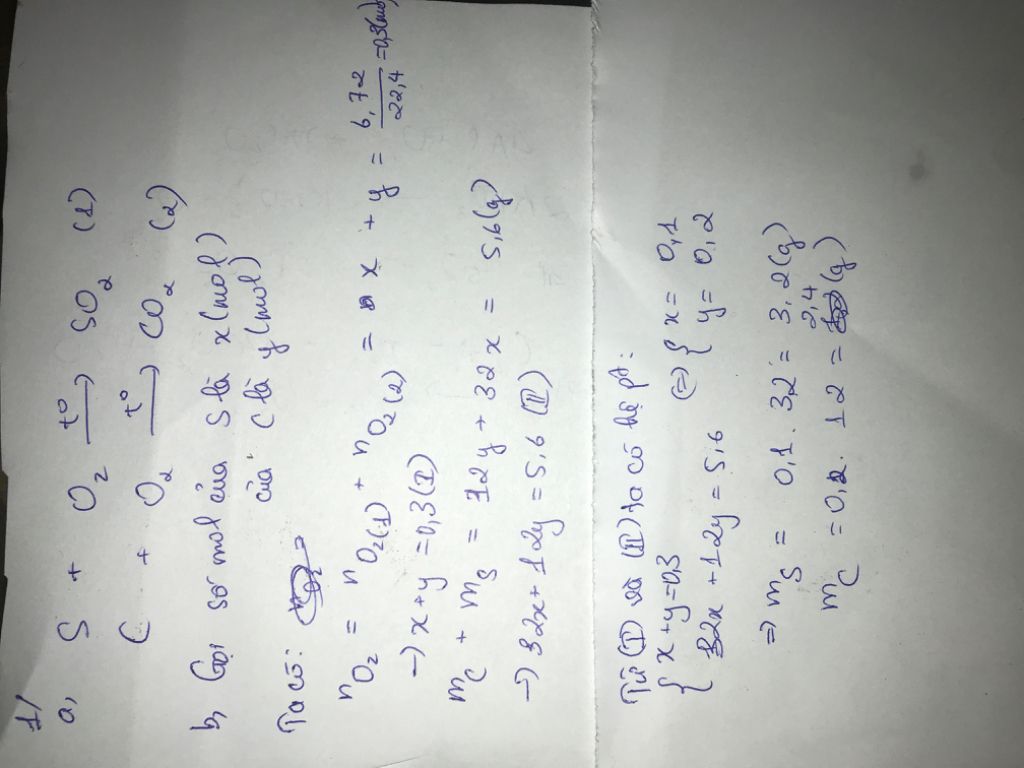 1/
a, S + O₂ t° → SO₂ (1)
C + O₂ t° → CO₂ (2)
b, Gọi số mol của S là x (mol)
của C là y (mol)
Ta có:
nO₂ = nO₂(1) + nO₂(2) = x + y = 6,72/22,4 = 0,3 (mol)
→ x + y = 0,3 (I)
mC + mS = 12y + 32x = 5,6 (g)
→ 32x + 12y = 5,6 (II)
Từ (I) và (II) ta có hệ pt:
{ x + y = 0,3 (=) { x = 0,1
32x + 12y = 5,6 y = 0,2
=> mS = 0,1 . 32 = 3,2 (g)
mC = 0,2 . 12 = 2,4 (g)